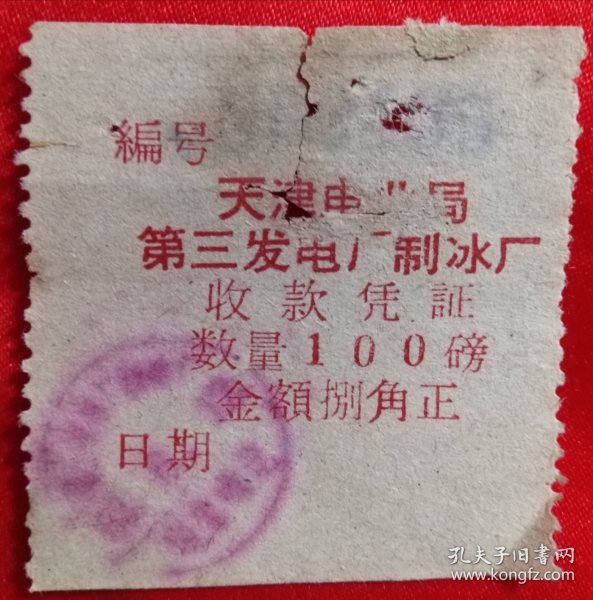 編号
天津电业局
第三发电厂制冰厂
收款凭証
数量100磅
金額捌角正
日期
孔夫子旧书网
www.kongfz.com